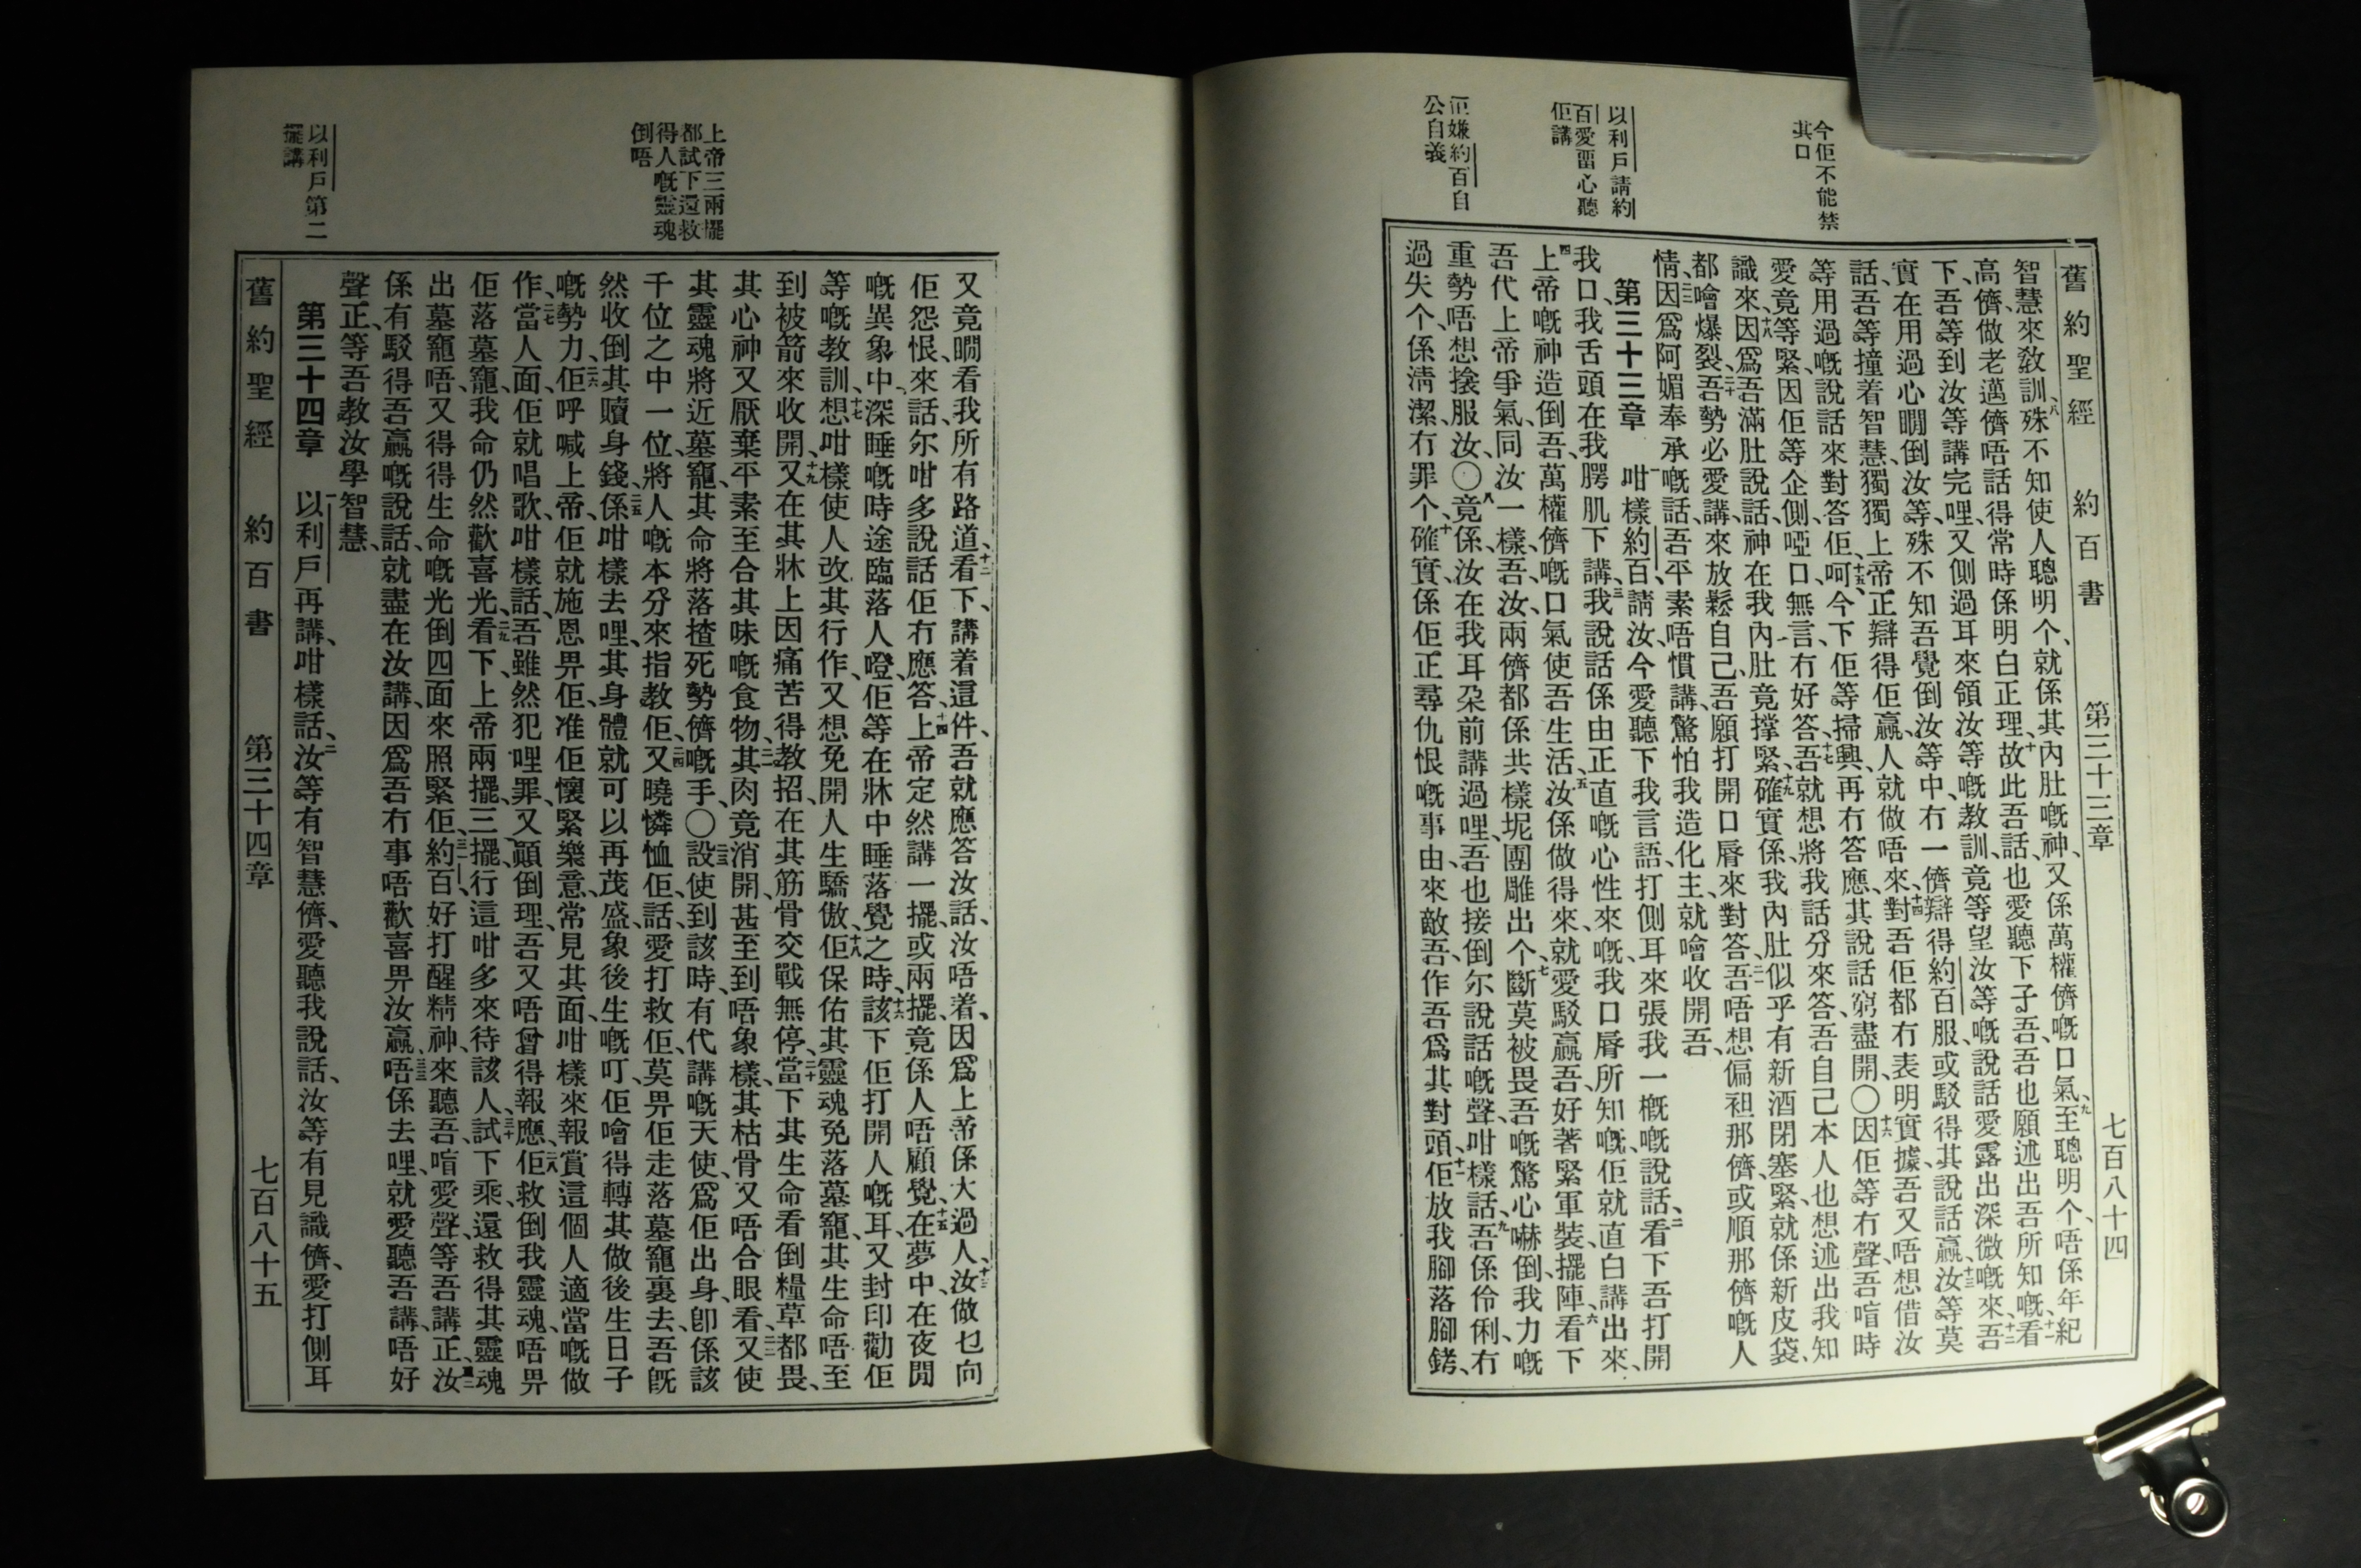 今佢不能禁
其口
以利戶請約
百愛畱心聽
佢講
佢嫌約百自
公自義
舊約聖經 約百書 第三十三章 七百八十四
智慧來教訓、八殊不知使人聰明个、就係其內肚嘅神、又係萬權儕嘅口氣、九至聰明个、唔係年紀
高儕、做老邁儕唔話得常時係明白正理、十故此吾話、也愛聽下子吾、吾也願述出吾所知嘅、十一看
下、吾等到汝等講完哩、又側過耳來領汝等嘅教訓、竟等望汝等嘅說話愛露出深微嘅來、十二吾
實在用過心睸倒汝等、殊不知吾覺倒汝等中、冇一儕辯得約百服、或駁得其說話贏、十三汝等莫
話、吾等撞着智慧、獨獨上帝正辯得佢贏、人就做唔來、十四對吾佢都冇表明實據、吾又唔想借汝
等用過嘅說話來對答佢、十五呵、今下佢等掃興、再冇答應、其說話窮盡開、〇十六因佢等冇聲、吾喧時
愛竟等緊、因佢等企側、啞口無言、冇好答、十七吾就想將我話分來答、吾自己本人也想述出我知
識來、十八因爲吾滿肚說話、神在我內肚竟撑緊、十九確實係、我內肚似乎有新酒閉塞緊、就係新皮袋、
都噲爆裂、二十吾勢必愛講、來放鬆自己、吾願打開口脣來對答、二一吾唔想偏袒那儕、或順那儕嘅人
情、二二因爲阿媚奉承嘅話、吾平素唔慣講、驚怕我造化主、就噲收開吾、
第三十三章 一咁樣約百、請汝今愛聽下我言語、打側耳來張我一概嘅說話、二看下吾打開
我口、我舌頭在我腭肌下講、三我說話係由正直嘅心性來嘅、我口脣所知嘅、佢就直白講出來、
四上帝嘅神造倒吾、萬權儕嘅口氣使吾生活、五汝係做得來、就愛駁贏吾、好著緊軍裝、擺陣、六看下
吾代上帝爭氣、同汝一樣、吾汝兩儕都係共樣坭團雕出个、七斷莫被畏吾嘅驚心嚇倒、我力嘅
重勢唔想捦服汝、〇八竟係、汝在我耳朶前講過哩、吾也接倒尔說話嘅聲、咁樣話、九吾係伶俐、冇
過失个、係清潔、冇罪个、十確實係佢正尋仇恨嘅事由、來敵吾、作吾爲其對頭、十一佢放我腳落腳銬、
上帝三兩擺
都試下還救
得人嘅靈魂
倒唔
以利戶第二
擺講
又竟睸看我所有路道、十二看下、講着這件、吾就應答汝話、汝唔着、因爲上帝係大過人、十三汝做乜向
佢怨恨、來話、尔咁多說話佢冇應答、十四上帝定然講一擺、或兩擺、竟係人唔顧覺、十五在夢中、在夜間
嘅異象中、深睡嘅時途臨落人嚒、佢等在牀中睡落覺之時、十六該下佢打開人嘅耳、又封印勸佢
等嘅教訓、十七想咁樣使人改其行作、又想免開人生驕傲、十八佢保佑其靈魂免落墓竉、其生命唔至
到被箭來收開、十九又在其牀上因痛苦得教招、在其筋骨交戰無停、二十當下其生命看倒糧草都畏、
其心神又厭棄平素至合其味嘅食物、二一其肉竟消開、甚至到唔象樣、其枯骨又唔合眼看、二二又使
其靈魂將近墓竉、其命將落揸死勢儕嘅手、〇二三設使到該時、有代講嘅天使、爲佢出身、卽係該
千位之中一位、將人嘅本分來指教佢、二四又曉憐恤佢、話、愛打救佢、莫畀佢走落墓竉裏去、吾旣
然收倒其贖身錢、二五係咁樣去哩、其身體就可以再茂盛、象後生嘅叮、佢噲得轉其做後生日子
嘅勢力、二六佢呼喊上帝、佢就施恩畀佢、准佢懷緊樂意、常見其面、咁樣來報賞這個人適當嘅做
作、二七當人面、佢就唱歌、咁樣話、吾雖然犯哩罪、又顚倒理、吾又唔曾得報應、二八佢救倒我靈魂、唔畀
佢落墓竉、我命仍然歡喜光、二九看下、上帝兩擺、三擺、行這咁多來待該人、三十試下乘、還救得其靈魂
出墓竉唔、又得得生命嘅光倒四面來照緊佢、三一約百好打醒精神、來聽吾、喧愛聲、等吾講正、三二汝
係有駁得吾贏嘅說話、就盡在汝講、因爲吾冇事唔歡喜畀汝贏、三三唔係去哩、就愛聽吾講、唔好
聲正、等吾教汝學智慧、
第三十四章 一以利戶再講、咁樣話、二汝等有智慧儕、愛聽我說話、汝等有見識儕、愛打側耳
舊約聖經 約百書 第三十四章 七百八十五